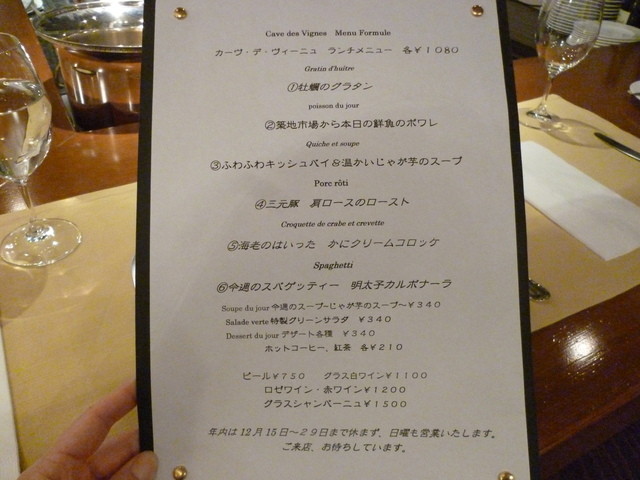 Cave des Vignes Menu Formule
カーヴ・デ・ヴィーニュ ランチメニュー 各¥1080
Gratin d'huitre
①牡蠣のグラタン
poisson du jour
②築地市場から本日の鮮魚のポワレ
Quiche et soupe
③ふわふわキッシュパイ＆温かいじゃが芋のスープ
Porc rôti
④三元豚 肩ロースのロースト
Croquette de crabe et crevette
⑤海老のはいった かにクリームコロッケ
Spaghetti
⑥今週のスパゲッティー 明太子カルボナーラ
Soupe du jour 今週のスープ~じゃが芋のスープ~¥340
Salade verte 特製グリーンサラダ ¥340
Dessert du jour デザート各種 ¥340
ホットコーヒー、紅茶 各¥210
ビール¥750 グラス白ワイン¥1100
ロゼワイン・赤ワイン¥1200
グラスシャンパーニュ¥1500
年内は12月15日～29日まで休まず、日曜も営業いたします。
ご来店、お待ちしています。